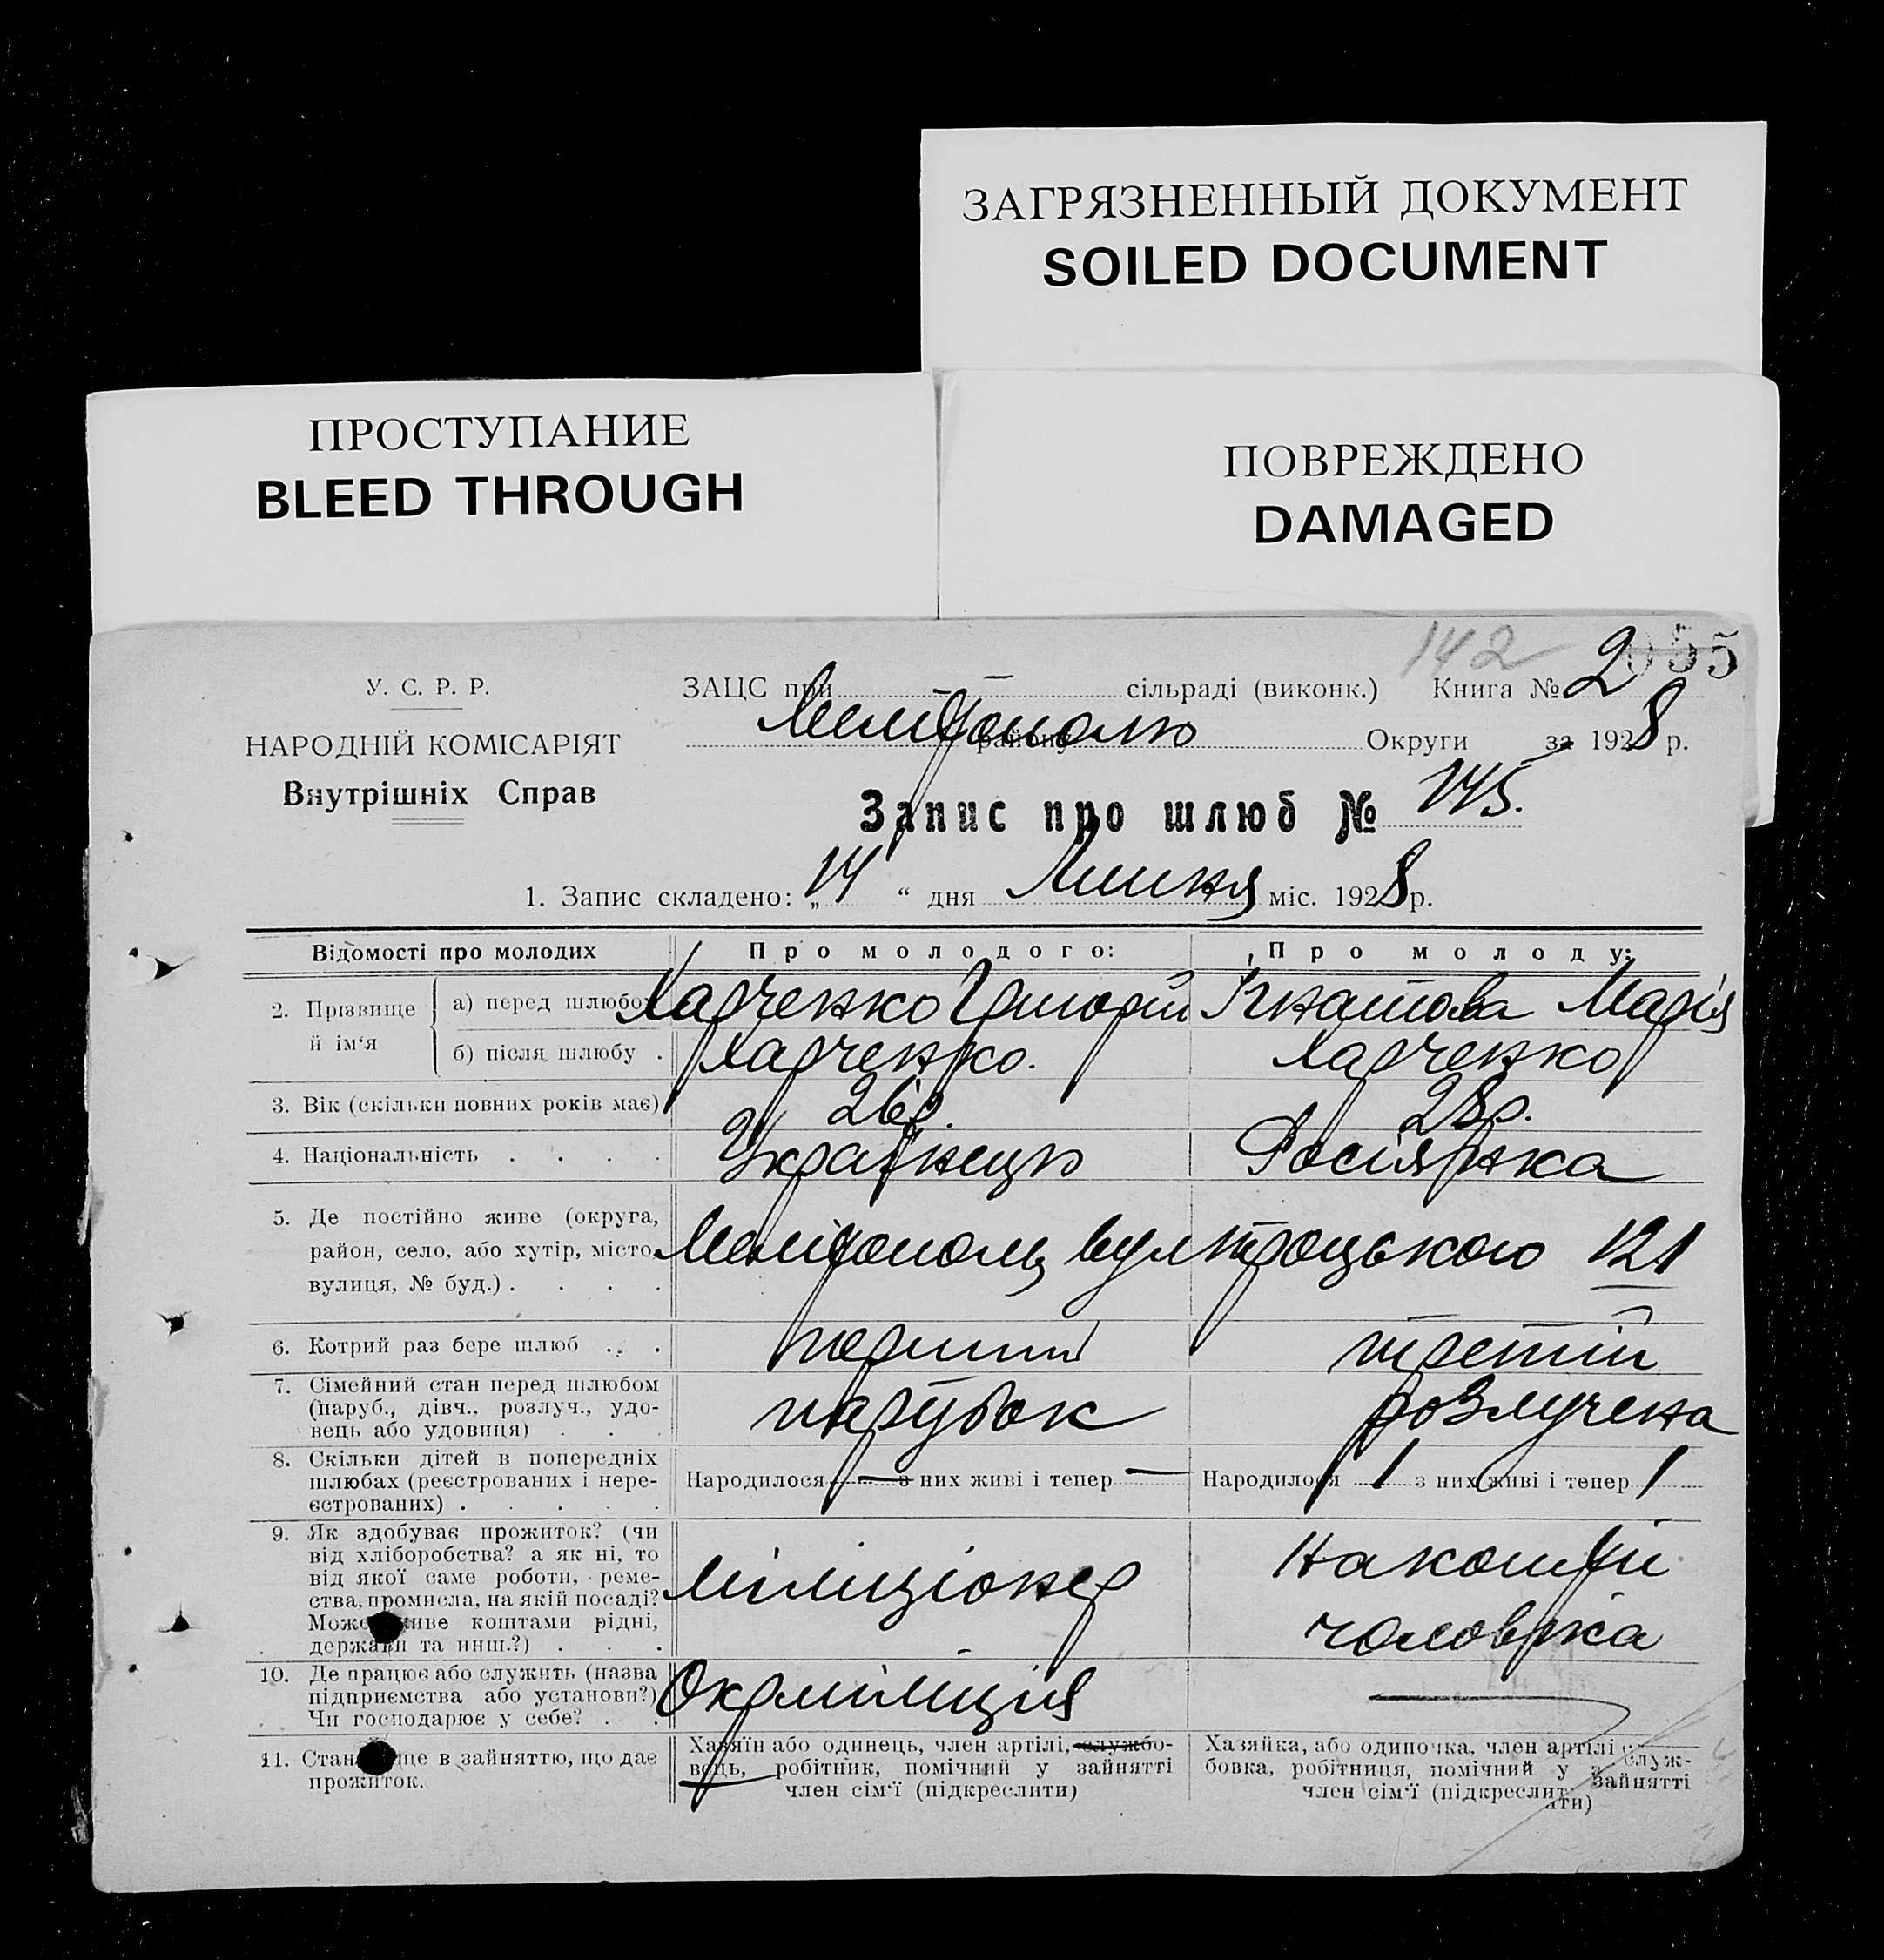 ЗАГРЯЗНЕННЫЙ ДОКУМЕНТ
SOILED DOCUMENT
ПРОСТУПАНИЕ
BLEED THROUGH
ПОВРЕЖДЕНО
DAMAGED
142 2 055
У. С. Р. Р.
НАРОДНІЙ КОМІСАРІЯТ
Внутрішніх Справ
ЗАЦС при — — сільраді (виконк.) Книга № 2
Мелітополю району Округи за 1928 р.
Запис про шлюб № 145.
1. Запис складено: „14“ дня Липня міс. 1928 р.
Відомості про молодих Про молодого: Про молоду:
2. Прізвище й ім‘я
а) перед шлюбом Харченко Григорій Ігнатова Марія
б) після шлюбу . Харченко. Харченко
3. Вік (скільки повних років має) 26р. 28р.
4. Національність . . . . Українець Росіянка
5. Де постійно живе (округа,
район, село, або хутір, місто,
вулиця, № буд.) . . . .
Мелітополь вул Троцького 121
6. Котрий раз бере шлюб . . . перший третій
7. Сімейний стан перед шлюбом
(паруб., дівч., розлуч., удо-
вець або удовиця) . . .
парубок розлучена
8. Скільки дітей в попередніх
шлюбах (реєстрованих і нере-
єстрованих) . . . . .
Народилося — з них живі і тепер — Народилося 1 з них живі і тепер 1
9. Як здобуває прожиток? (чи
від хліборобства? а як ні, то
від якої саме роботи, реме-
ства, промисла, на якій посаді?
Може живе коштами рідні,
держави та инш.?) . . .
міліціонер
на коштів
чоловіка
10. Де працює або служить (назва
підприємства або установи?)
Чи господарює у себе? . .
Окрміліція —
11. Становище в зайняттю, що дає
прожиток.
Хазяїн або одинець, член артілі, службо-
вець, робітник, помічний у зайнятті
член сім‘ї (підкреслити)
Хазяйка, або одиночка, член артілі служ-
бовка, робітниця, помічний у зайнятті
член сім‘ї (підкреслити)